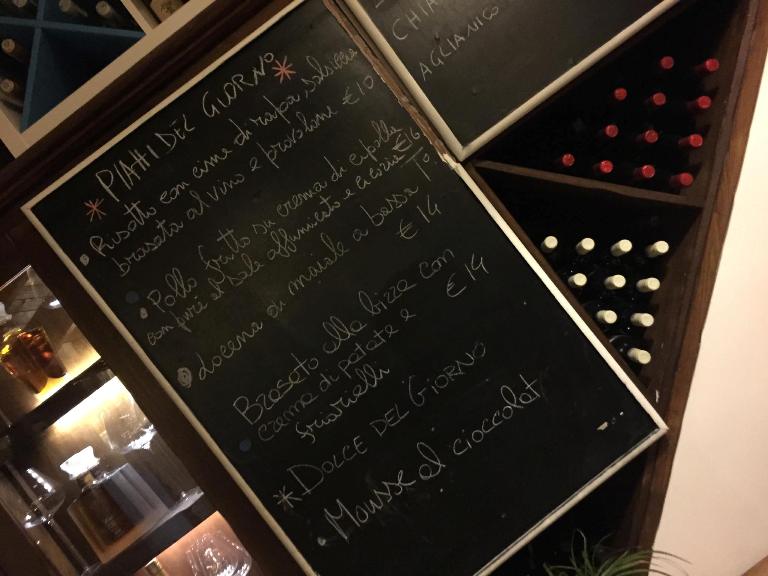 CHIA
AGLIANICO
* PIATTI DEL GIORNO *
Risotto con cime di rapa, salsiccia
brasata al vino e provolone €10
Pollo fritto su crema di cipolla
con purè al sale affumicato e cicoria €16
Locena di maiale a bassa T°
€14
Brasato alla birra con
crema di patate e €14
friarielli
* DOLCE DEL GIORNO
Mousse al cioccolat